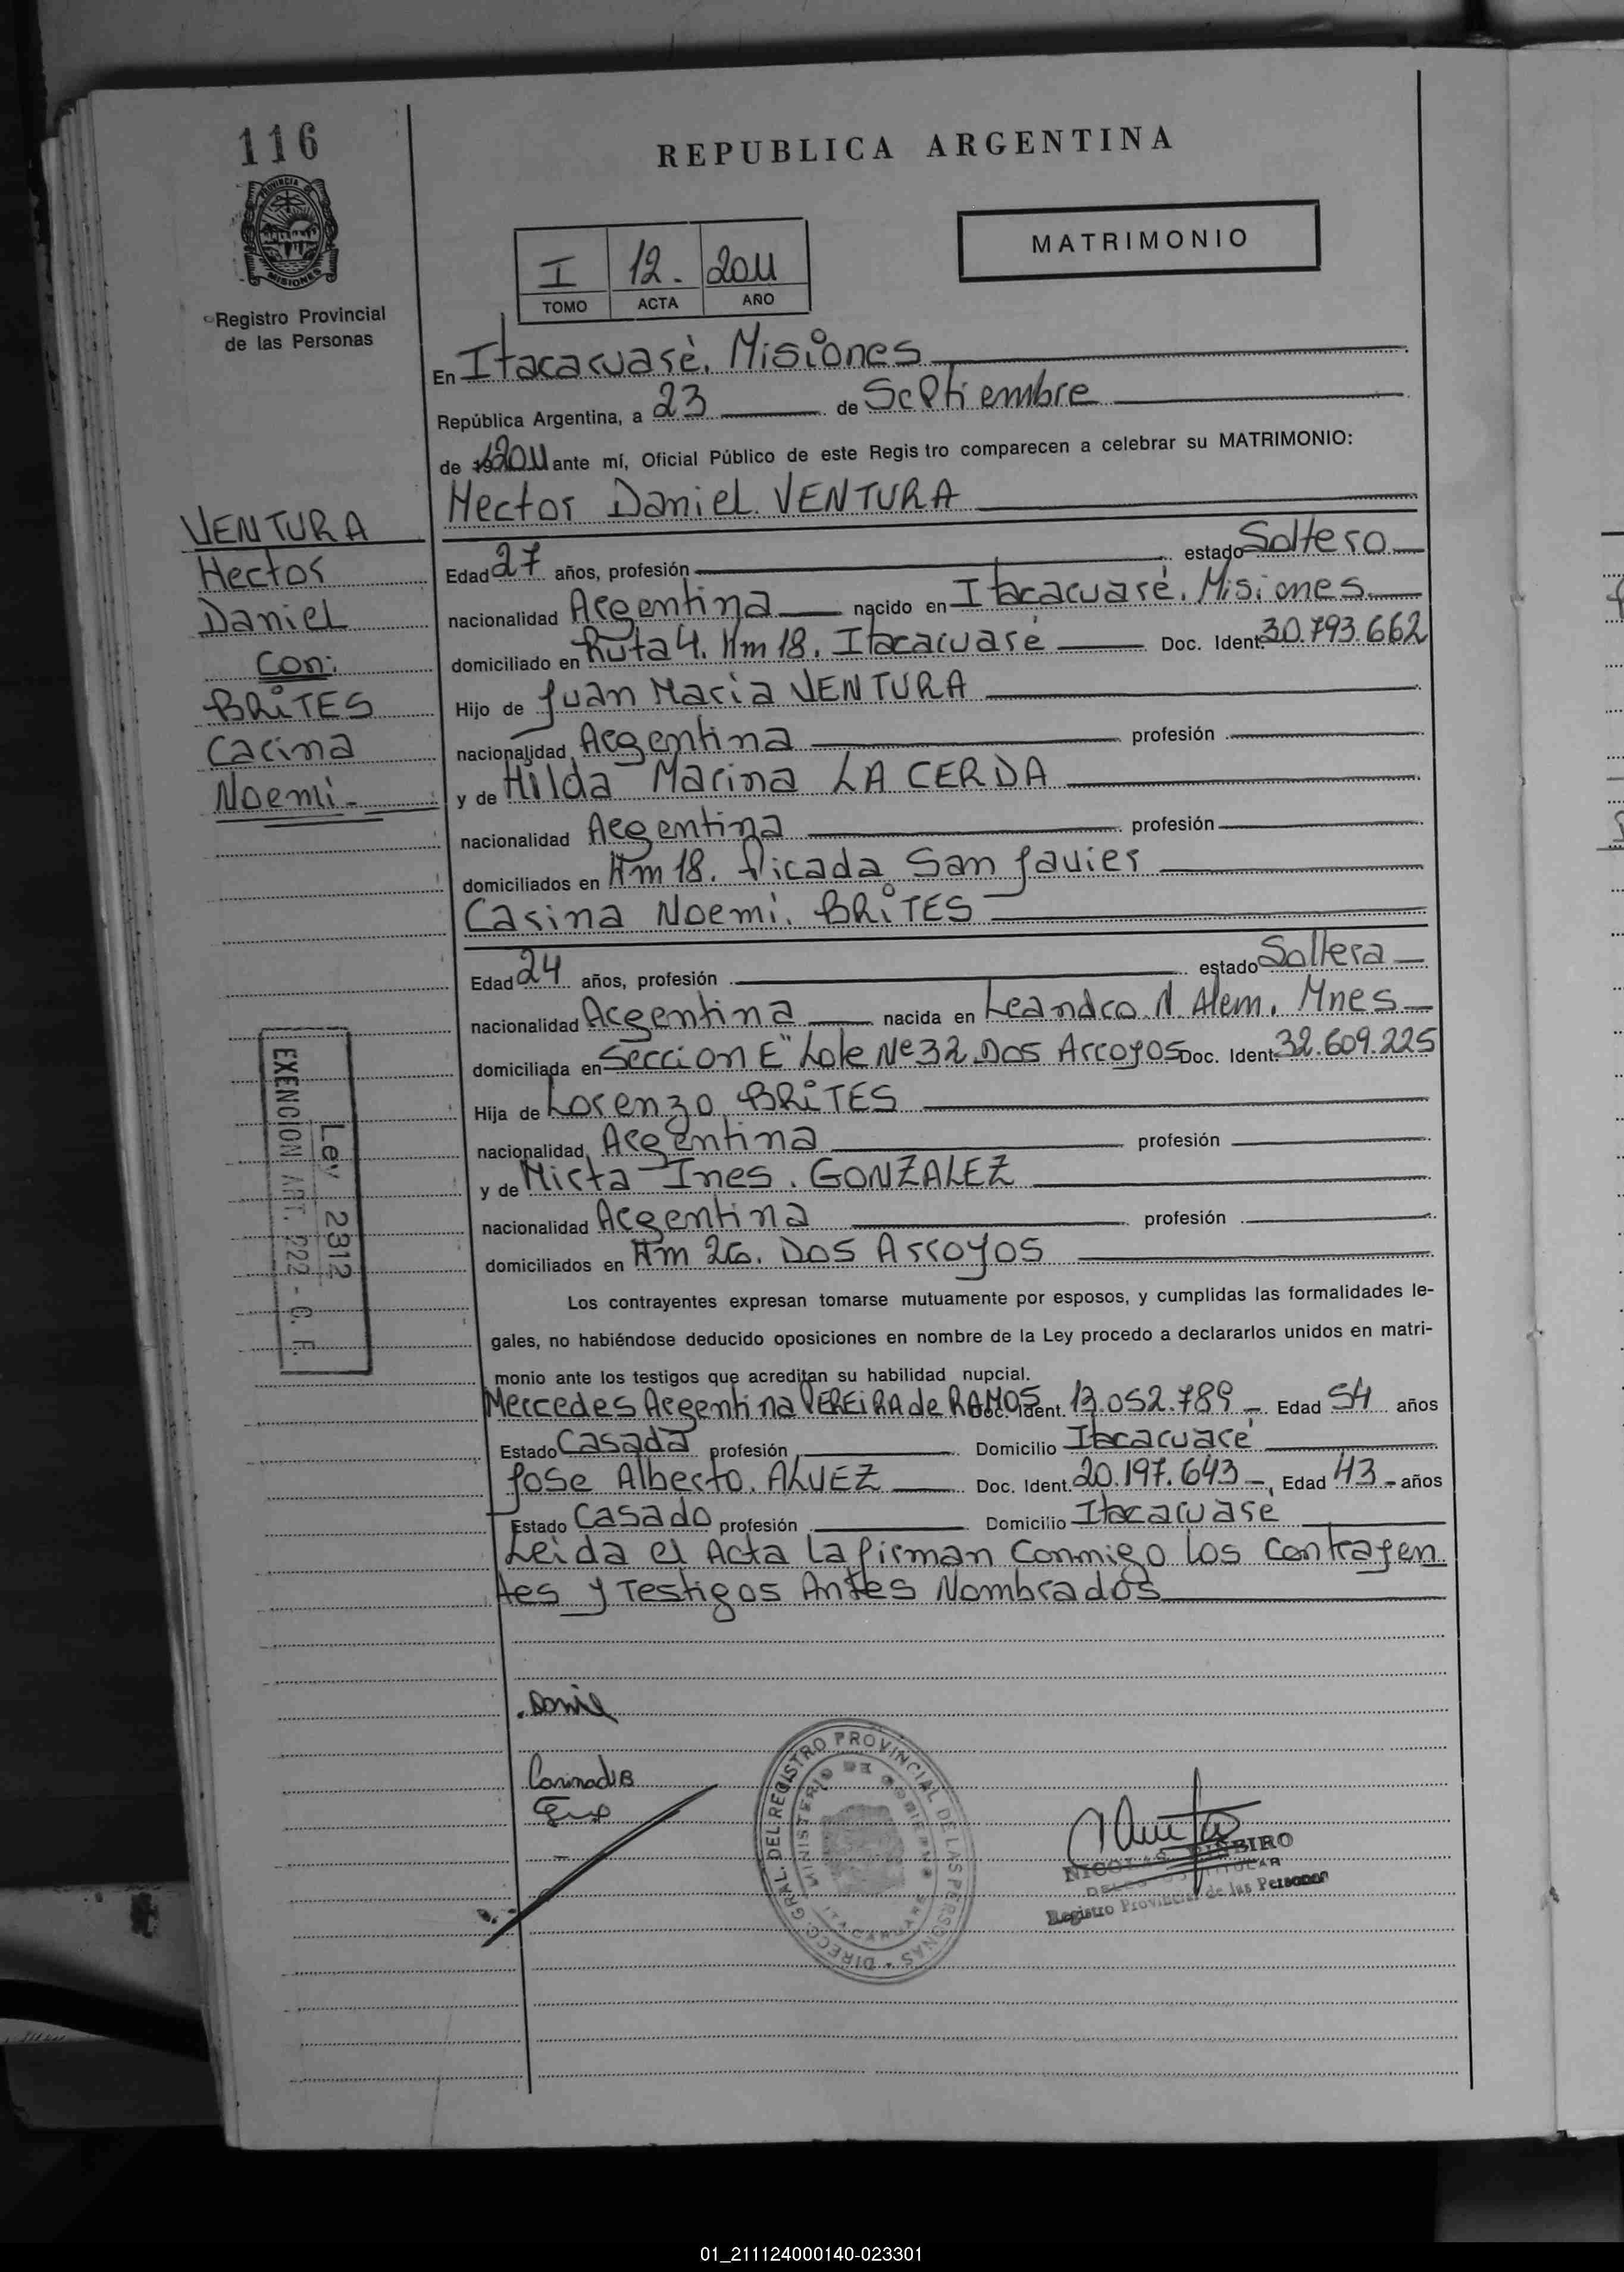 116
REPUBLICA ARGENTINA
PROVINCIA DE MISIONES
Registro Provincial
de las Personas
I 12. 2011
TOMO ACTA AÑO
MATRIMONIO
En Itacaruasè. Misiones
República Argentina, a 23 de Septiembre
de 2011 ante mí, Oficial Público de este Regis tro comparecen a celebrar su MATRIMONIO:
Hector Daniel. VENTURA
VENTURA
Hector
Daniel
Con:
BRiTES
Carina
Noemi-
Edad 27 años, profesión estado Soltero
nacionalidad Argentina nacido en Itacaruaré. Misiones
domiciliado en Ruta 4. Km 18. Itacaruaré Doc. Ident. 30.793.662
Hijo de Juan Maria VENTURA
nacionalidad Argentina profesión
y de Hilda Marina LA CERDA
nacionalidad Argentina profesión
domiciliados en Km 18. Picada San Javier
Carina Noemi. BRiTES
Edad 24 años, profesión estado Soltera
nacionalidad Argentina nacida en Leandro. N. Alem. Mnes
domiciliada en Seccion E" Lote Nº 32 Dos Arroyos Doc. Ident. 32.609.225
Hija de Lorenzo BRiTES
nacionalidad Argentina profesión
y de Mirta Ines. GONZALEZ
nacionalidad Argentina profesión
domiciliados en Km 26. Dos Arroyos
Ley 2312
EXENCION ART. 222 - C. F.
Los contrayentes expresan tomarse mutuamente por esposos, y cumplidas las formalidades le-
gales, no habiéndose deducido oposiciones en nombre de la Ley procedo a declararlos unidos en matri-
monio ante los testigos que acreditan su habilidad nupcial.
Mercedes Argentina PEREiRA de RAMOS Doc. Ident. 13.052.789 - Edad 54 años
Estado Casada profesión Domicilio Itacaruaré
Jose Alberto. ALVEZ Doc. Ident. 20.197.643 - Edad 43 - años
Estado Casado profesión Domicilio Itacaruare
Leida el Acta La firman Conmigo los Contrayen
tes y Testigos Antes Nombrados
Daniel
DIRECC. GRAL. DEL REGISTRO PROVINCIAL DE LAS PERSONAS
MINISTERIO DE GOBIERNO
ITACARUARE
NICOLAS PIÑEIRO
TITULAR
Registro Provincial de las Personas
01_211124000140-023301